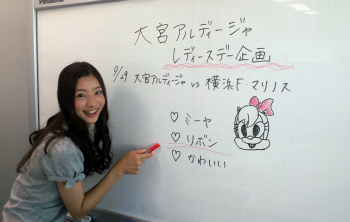 Panasonic
大宮アルディージャ
レディースデー企画
9/29 大宮アルディージャ vs 横浜F・マリノス
♡ ミーヤ
♡ リボン
♡ かわいい